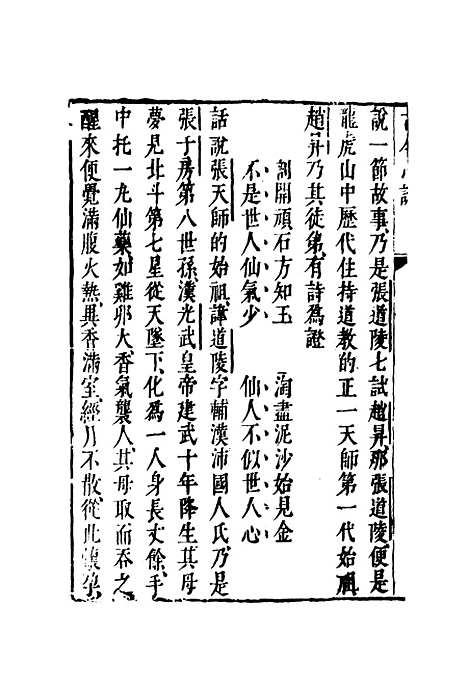 說一節故事乃是張道陵七試趙昇那張道陵便是
龍虎山中歷代住持道教的正一天師第一代始祖
趙昇乃其徒弟有詩爲證
剖開頑石方知玉 淘盡泥沙始見金
不是世人仙氣少 仙人不似世人心
話說張天師的始祖諱道陵字輔漢沛國人氏乃是
張子房第八世孫漢光武皇帝建武十年降生其母
夢見北斗第七星從天墜下化爲一人身長丈餘手
中托一丸仙藥如雞卵大香氣襲人其母取而吞之
醒來便覺滿腹火熱異香滿室經月不散從此懷孕